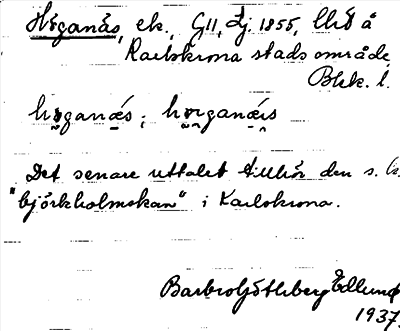 Höganäs, ek., G11, Lj. 1855, Utö å
Karlskrona stads område,
Blek. l.
høganæ̂s; hørganæ̂rs
Det senare uttalet tillhör den s. k.
"björkholmskan" i Karlskrona.
Barbro Göthberg Edlund
1937.